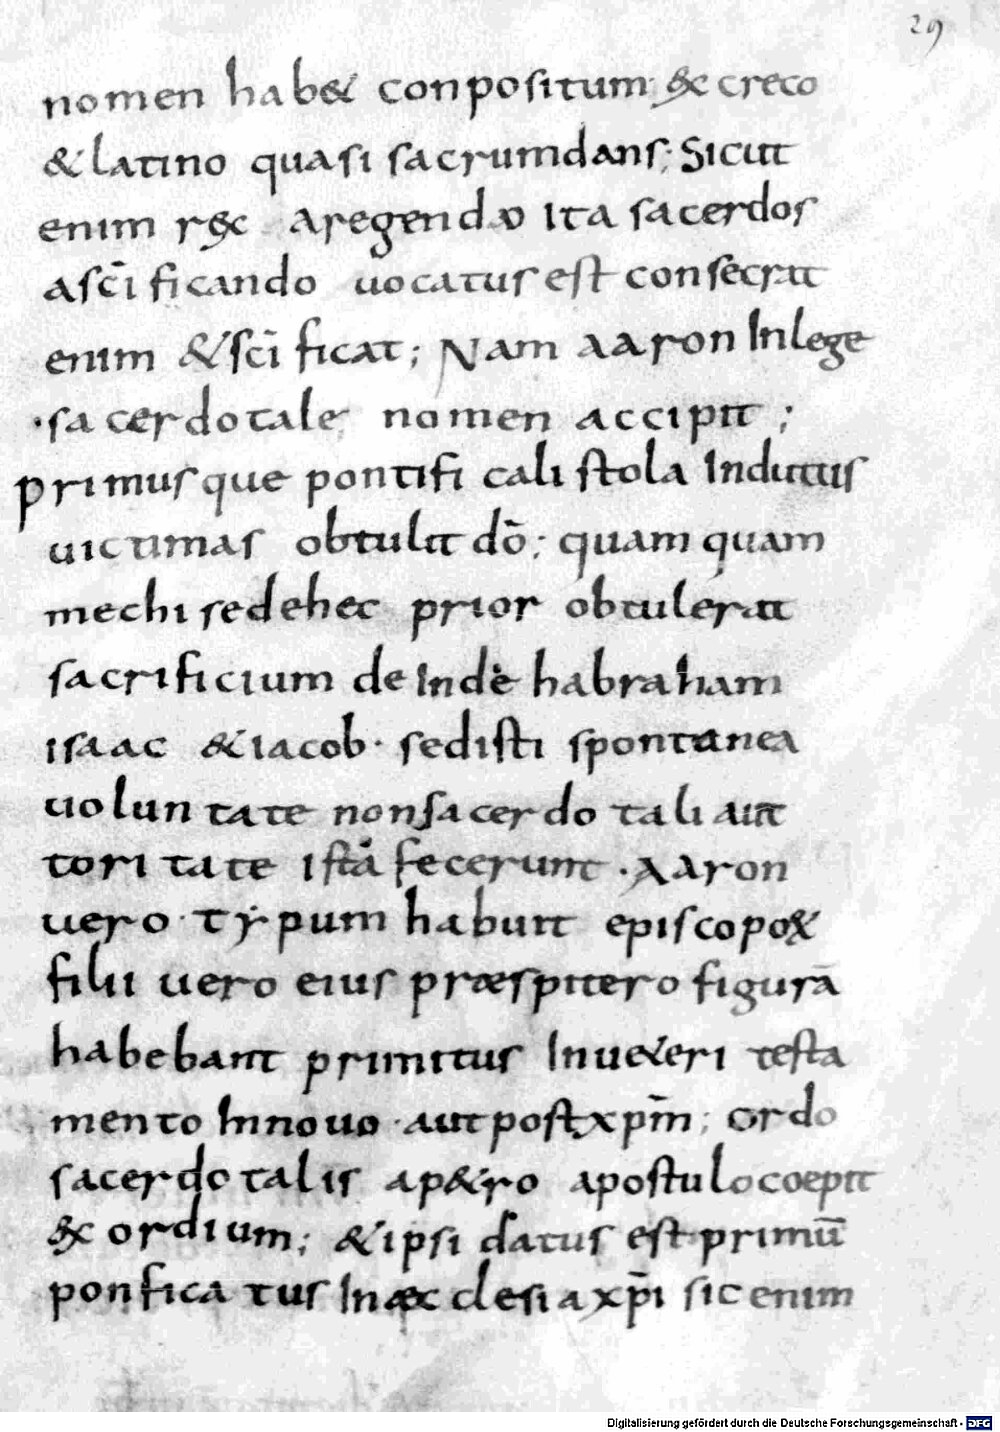 29
nomen hab& conpositum; ex creco
& latino quasi sacrum dans; Sicut
enim rex a regendo Ita sacerdos
a sc̄ificando uocatus est consecrat
enim & sc̄ificat; Nam aaron In lege
·sacerdotale nomen accipit;
primusque pontificali stola Indutus
uictimas obtulit dō; quam quam
mechisedehec prior obtulerat
sacrificium de Inde habraham
isaac & iacob· sed isti spontanea
uoluntate non sacerdotali auc
toritate istā fecerunt· Aaron
uero· typum habuit episcopox
filii uero eius præspitero figurā
habebant primitus In ueteri testa
mento In nouo· aut post xpm̄; ordo
sacerdotalis a p&ro apostulo coepit
exordium; & ipsi datus est primū
ponficatus In æcclesia xp̄i sic enim
Digitalisierung gefördert durch die Deutsche Forschungsgemeinschaft - DFG